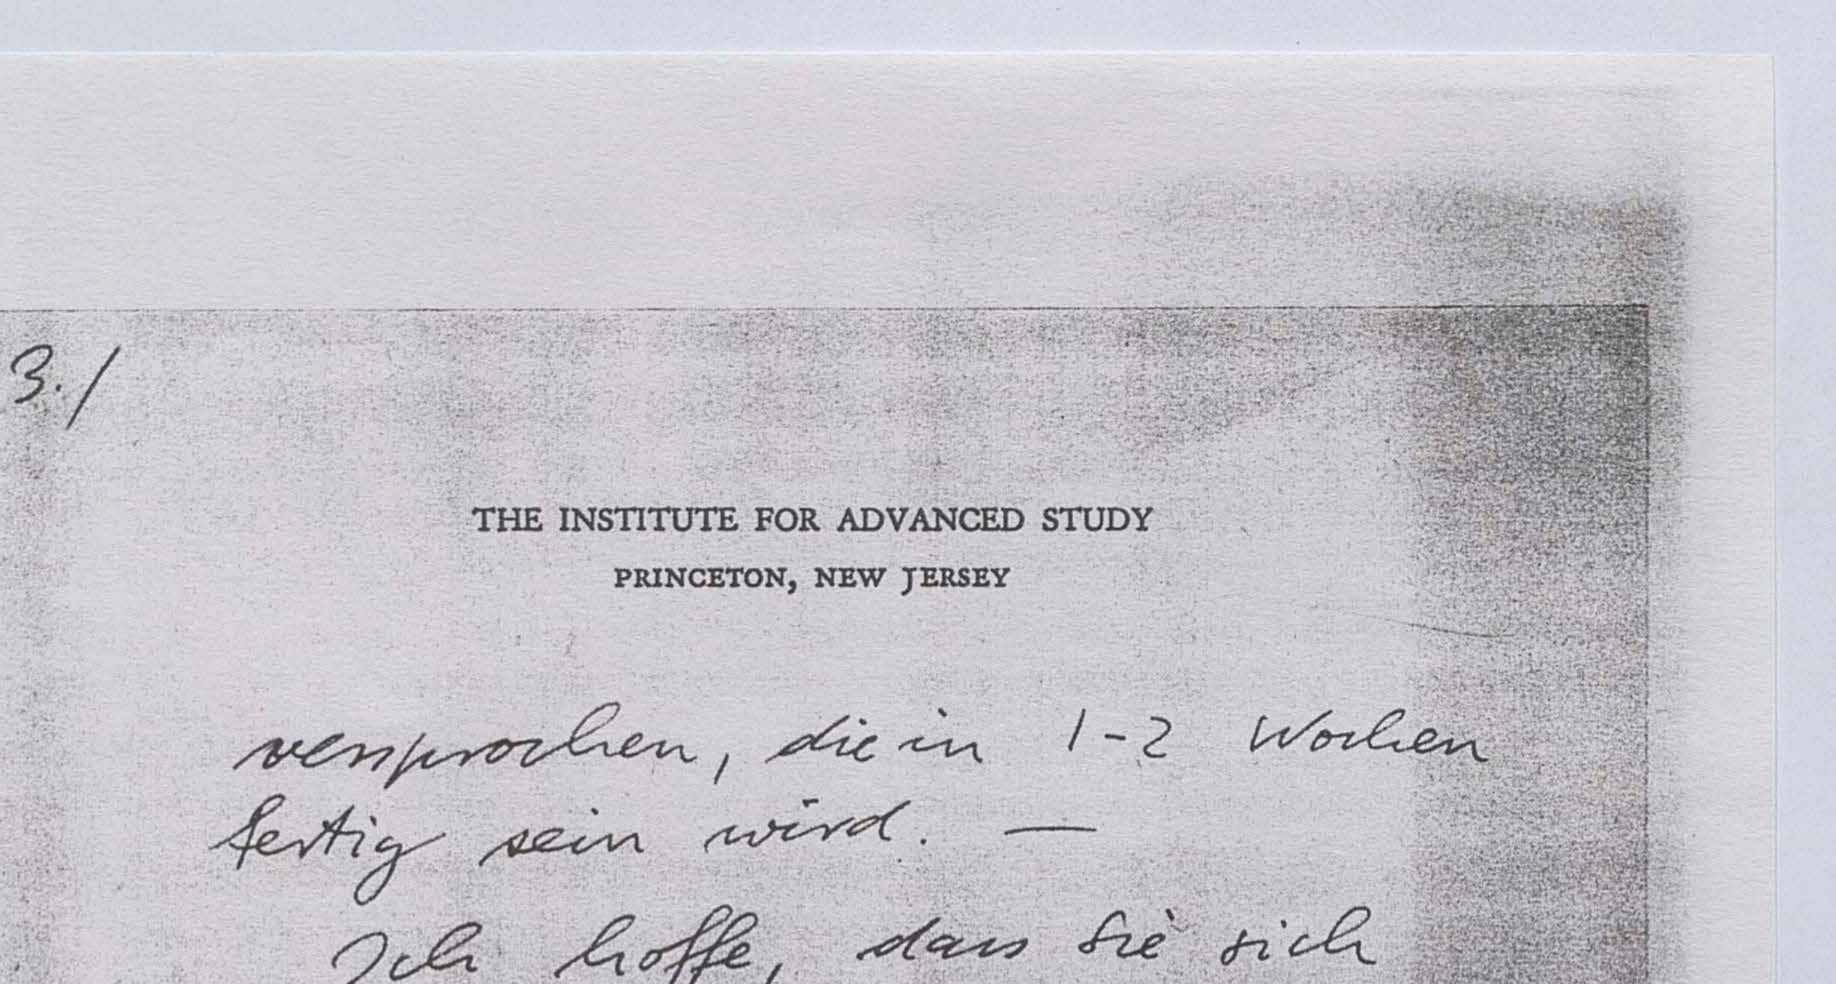 3./
THE INSTITUTE FOR ADVANCED STUDY
PRINCETON, NEW JERSEY
versprochen, die in 1-2 Wochen
fertig sein wird. —
Ich hoffe, dass Sie sich